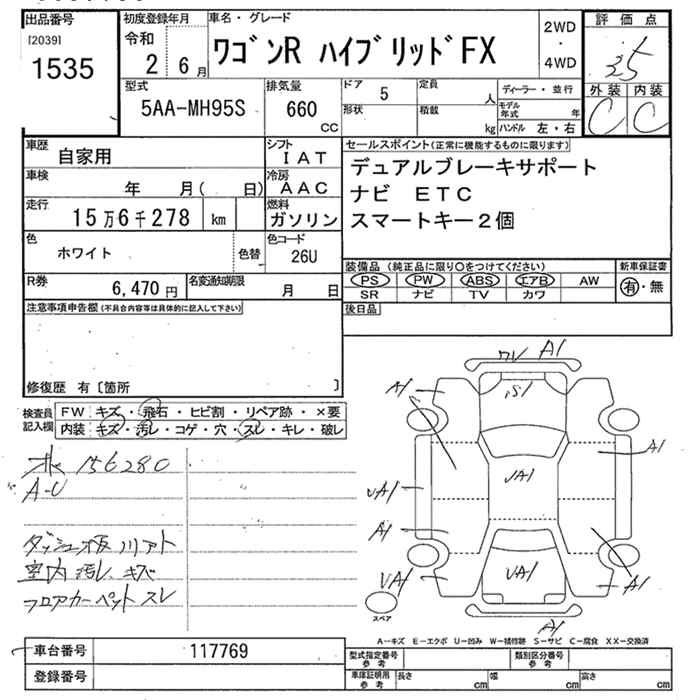 出品番号
[2039]
1535
初度登録年月
令和
2 6月
車名・グレード
ワゴンR ハイブリッドFX
2WD
・
4WD
評価点
3.5
外装 内装
C C
型式
5AA-MH95S
排気量
660
CC
ドア 5
形状
定員
人
積載
kg
ディーラー・並行
モデル年式 年
ハンドル 左・右
車歴
自家用
シフト
IAT
車検
年 月( 日)
冷房
AAC
走行
15万6千278 km
燃料
ガソリン
色
ホワイト
色替
色コード
26U
R券
6,470円
名変通知期限
月 日
セールスポイント(正常に機能するものに限ります)
デュアルブレーキサポート
ナビ ETC
スマートキー2個
装備品(純正品に限り○をつけてください)
PS PW ABS エアB AW
SR ナビ TV カワ
新車保証書
有・無
後日品
注意事項申告欄(不具合内容等は具体的に記入して下さい)
修復歴 有〔箇所 〕
検査員
記入欄
FW キズ・飛石・ヒビ割・リペア跡・×要
内装 キズ・汚レ・コゲ・穴・スレ・キレ・破レ
156280
A-U
室内 汚レ、キズ
フロアカーペット スレ
A1
A1
A1
UA1
UA1
A1
A1
UA1
UA1
A1
A1
スペア
A-キズ E-エクボ U-凹み W-補修跡 S-サビ C-腐食 XX-交換済
車台番号
117769
登録番号
型式指定番号
参考
類別区分番号
参考
車庫証明用
参考
長さ cm
幅 cm
高さ cm